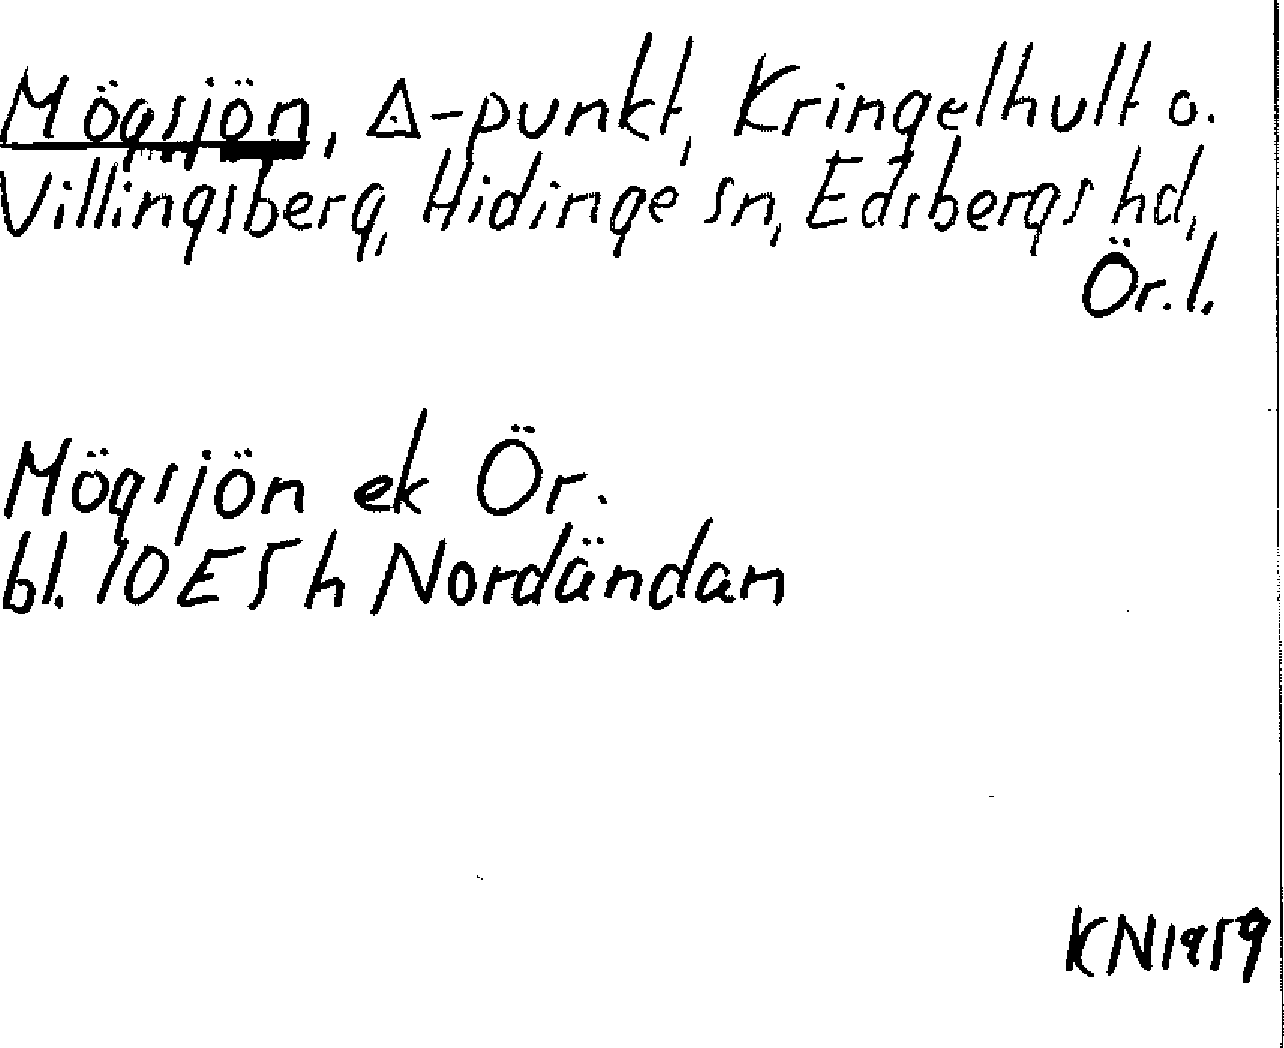 Mögsjön, ◬-punkt, Kringelhult o.
Villingsberg, Hidinge sn, Edsbergs hd,
Ör. l.
Mögsjön ek Ör.
bl. 10E5h Nordändan
KN1959